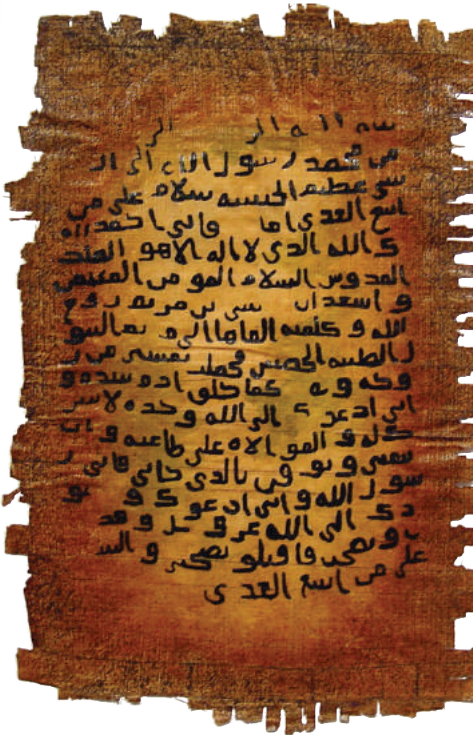 بسم الله الر الر
من محمد رسول الله الى ال
نجاسي عظيم الحبشه سلام على من
اتبع الهدى اما فاني احمد الي
ك الله الذي لا اله الا هو الملك
القدوس السلام المومن المهيمن
و اشهد ان عيسى بن مريم روح
الله و كلمته القاها الى مريم البتو
ل الطيبه الحصينه فحملت بعيسى من ر
وحه و كما خلق ادم بيده و
اني ادعوك الى الله وحده لا شر
يك له و الموالاه على طاعته و ان
تتبعني و توقن بالذي جاني فاني ر
سول الله و اني ادعوك و جنو
دك الى الله عز و جل و قد
و نصحت فاقبلو نصيحتي و السلام
على من اتبع الهدى